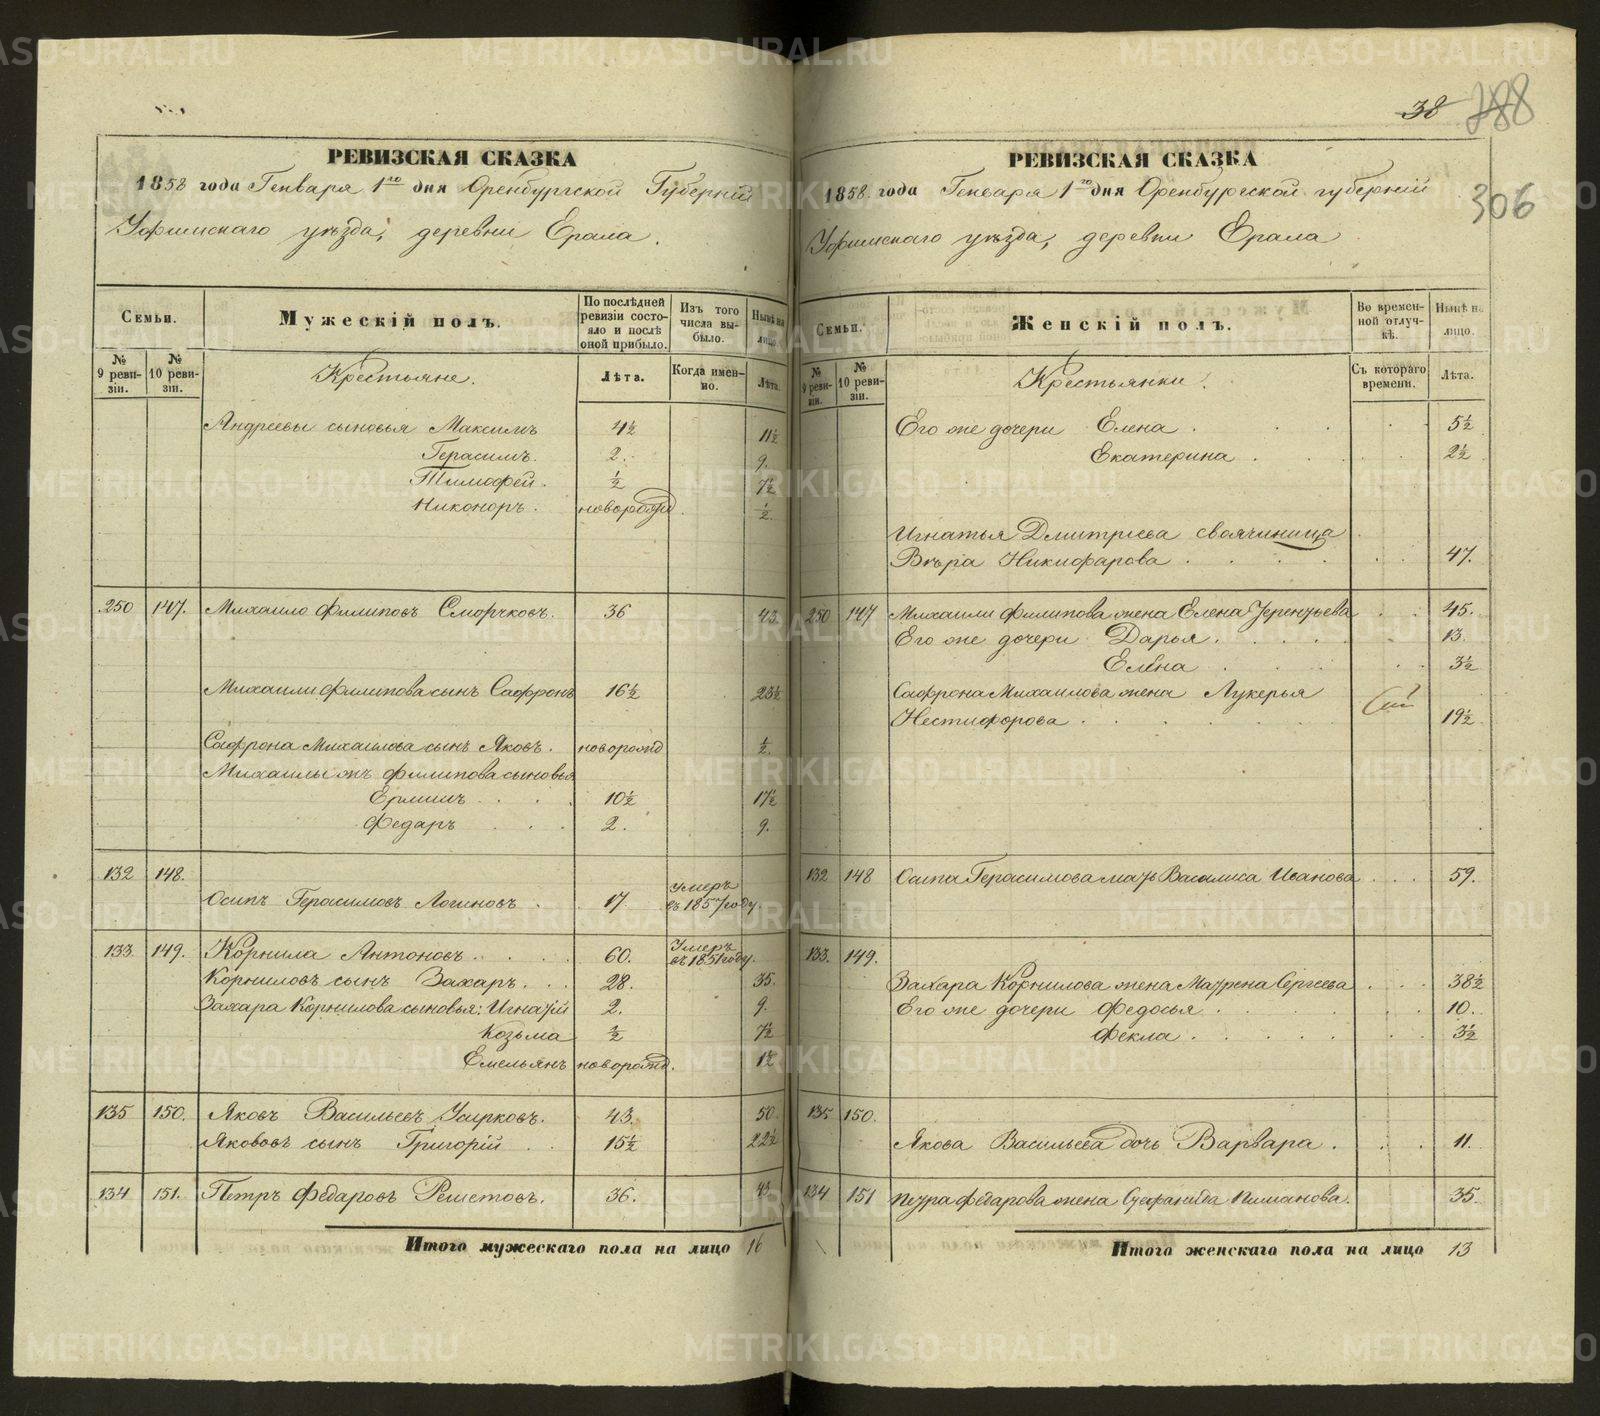 РЕВИЗСКАЯ СКАЗКА
1858 года Генваря 1го дня Оренбургской Губерніи
Уфимскаго уѣзда, деревни Ерала.
Семьи.
Мужескій полъ.
По послѣдней ревизіи состояло и послѣ оной прибыло.
Изъ того числа выбыло.
Нынѣ на лицо.
№ 9 ревизіи.
№ 10 ревизіи.
Крестьяне.
Лѣта.
Когда именно.
Лѣта.
Андреевы сыновья Максимъ 4½ 11½
Герасимъ. 2. 9.
Тимофей. ½ 7½
Никоноръ. новорожд. ½
250 147. Михаило Филиповъ Сморчковъ. 36 43.
Михаили Филипова сынъ Сафронъ 16½ 23½
Сафрона Михаилова сынъ Яковъ. новорожд ½
Михаилы жъ Филипова сыновья
Ермилъ 10½ 17½
Федаръ 2. 9.
132 148.
Осипъ Герасимовъ Логиновъ. 17 умеръ въ 1857 году.
133 149. Корнила Антоновъ. 60. Умеръ въ 1851 году.
Корниловъ сынъ Захаръ. 28. 35.
Захара Корнилова сыновья: Игнатій 2. 9.
Козьма ½ 7½
Емельянъ новорожд. 1½
135 150. Яковъ Васильевъ 43. 50.
Яковъ сынъ Григорій 15½ 22½
134 151. Петръ Федаровъ Решетовъ. 36. 43.
Итого мужескаго пола на лицо 16
38 288
306
РЕВИЗСКАЯ СКАЗКА
1858 года Генваря 1го дня Оренбургской губерніи
Уфимскаго уѣзда, деревни Ерала
Семьи.
Женскій полъ.
Во временной отлучкѣ.
Нынѣ на лицо.
№ 9 ревизіи.
№ 10 ревизіи.
Крестьянки.
Съ котораго времени.
Лѣта.
Его же дочери Елена 5½
Екатерина 2½
Игнатья Дмитриева своячиница
Вѣра Никифарова 47.
250 147 Михаили Филипова жена Елена Терентьева 45.
Его же дочери Дарья. 13.
Елена 3½
Сафрона Михаилова жена Лукерья
Нестифорова 19½
132 148 Осипа Герасимова мать Василиса Иванова 59.
133. 149.
Захара Корнилова жена Матрена Сергеева 38½
Его же дочери Федосья 10.
Фекла. 3½
135 150.
Якова Васильева дочь Варвара. 11.
134 151 Петра Федарова жена Стефанида 35.
Итого женскаго пола на лицо 13
METRIKI.GASO-URAL.RU